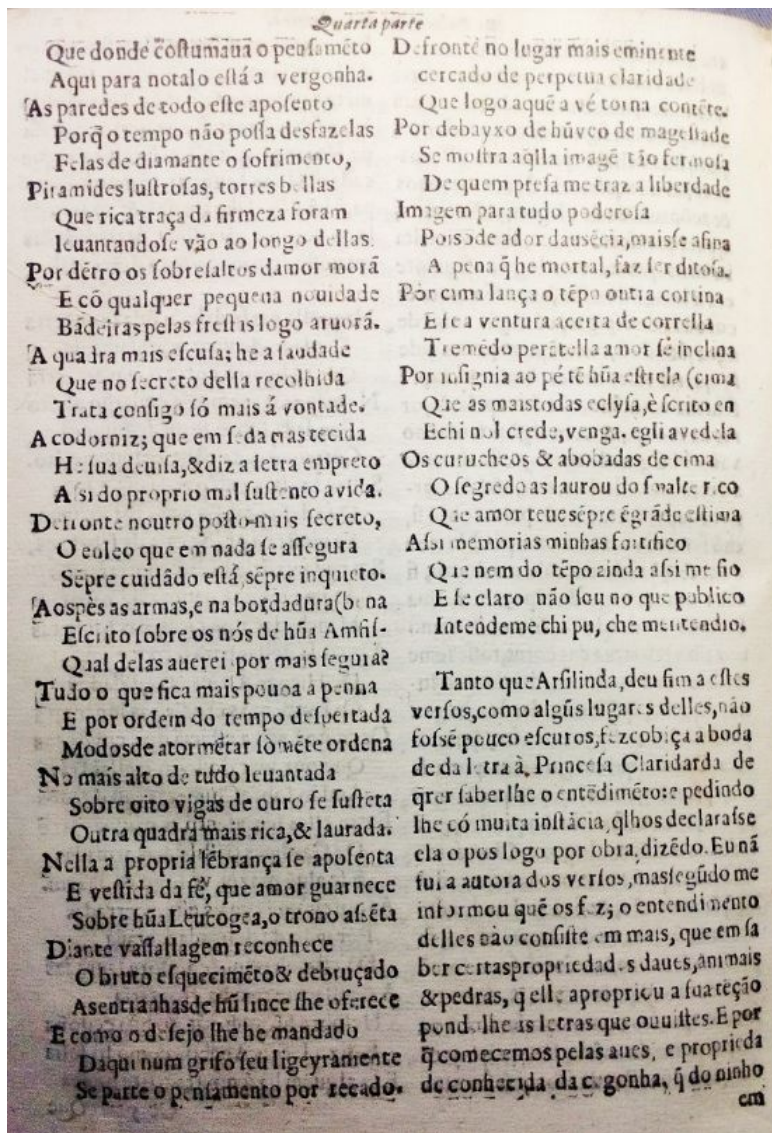 Quarta parte
Que donde costumaua o pensamẽto
Aqui para notalo està a vergonha.
As paredes de todo este aposento
Porq̃ o tempo não possa desfazelas
Felas de diamante o sofrimento,
Piramides lustrosas, torres bellas
Que rica traça da firmeza foram
leuantandose vão ao longo dellas.
Por dẽtro os sobresaltos damor morã
E cõ qualquer pequena nouidade
Bãdeiras pelas frestas logo aruorã.
A quadra mais escusa; he a saudade
Que no secreto della recolhida
Trata consigo só mais á vontade.
A codorniz; que em seda mas tecida
He sua deuisa, & diz a letra em preto
Asi do proprio mal sustento a vida.
Defronte noutro posto mais secreto,
O euleo que em nada se assegura
Sẽpre cuidãdo està, sẽpre inquieto.
Aos pès as armas, e na bordadura (bena
Escrito sobre os nós de hũa Amfis-
Qual delas auerei por mais segura?
Tudo o que fica mais pouoa a penna
E por ordem do tempo despertada
Modos de atormẽtar sòmẽte ordena
No mais alto de tudo leuantada
Sobre oito vigas de ouro se sustẽta
Outra quadra mais rica, & laurada.
Nella a propria lẽbrança se aposenta
E vestida da fè, que amor guarnece
Sobre hũa Leucogea, o trono assẽta
Diante vassallagem reconhece
O bruto esquecimẽto & debruçado
As entranhas de hũ lince lhe oferece
E como o desejo lhe he mandado
Daqui num grifo seu ligeyramente
Se parte o pensamento por recado.
Defronte no lugar mais eminente
cercado de perpetua claridade
Que logo a quẽ a vé torna contẽte.
Por debayxo de hũ veo de magestade
Se mostra aq̃lla imagẽ tão fermosa
De quem presa me traz a liberdade
Imagem para tudo poderosa
Pois õde a dor dausẽcia, mais se afina
A pena q̃ he mortal, faz ser ditosa.
Por cima lança o tẽpo outra cortina
E se a ventura acerta de corrella
Tremẽdo perãtella amor se inclina
Por insignia ao pé tẽ hũa estrela (cima
Que as mais todas eclysa, è scrito en
E chi nol crede, venga. egli a vedela
Os curucheos & abobadas de cima
O segredo as laurou do smalte rico
Que amor teue sẽpre ẽ grãde estima
Assi memorias minhas fortifico
Que nem do tẽpo ainda assi me fio
E se claro não sou no que publico
Intendeme chi pu, che mentendio.
Tanto que Arsilinda, deu fim a estes
versos, como algũs lugares delles, não
fossẽ pouco escuros, fez cobiça a boda
de da letra à, Princesa Claridarda de
q̃rer saber lhe o entẽdimẽto: e pedindo
lhe có muita instãcia, q̃ lhos declarasse
ela o pos logo por obra, dizẽdo. Eu nã
fui a autora dos versos, mas segũdo me
informou quẽ os fez; o entendimento
delles não consiste em mais, que em sa
ber certas propriedades daues, animais
& pedras, q̃ elle apropriou a sua tẽção
pondolhe as letras que ouuistes. E por
q̃ comecemos pelas aues, e proprieda
de conhecida da cegonha, q̃ do ninho
em